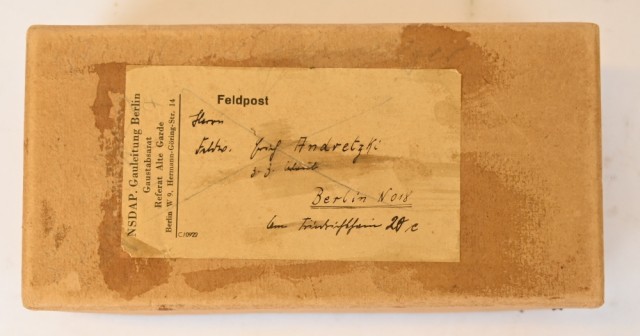 NSDAP. Gauleitung Berlin
Gaustabsarat
Referat Alte Garde
Berlin W 9, Hermann-Göring-Str. 14
Feldpost
Herrn
Feldw. Erich Andretzki
z. Z.
Berlin NO18
Am Friedrichshain 20 c